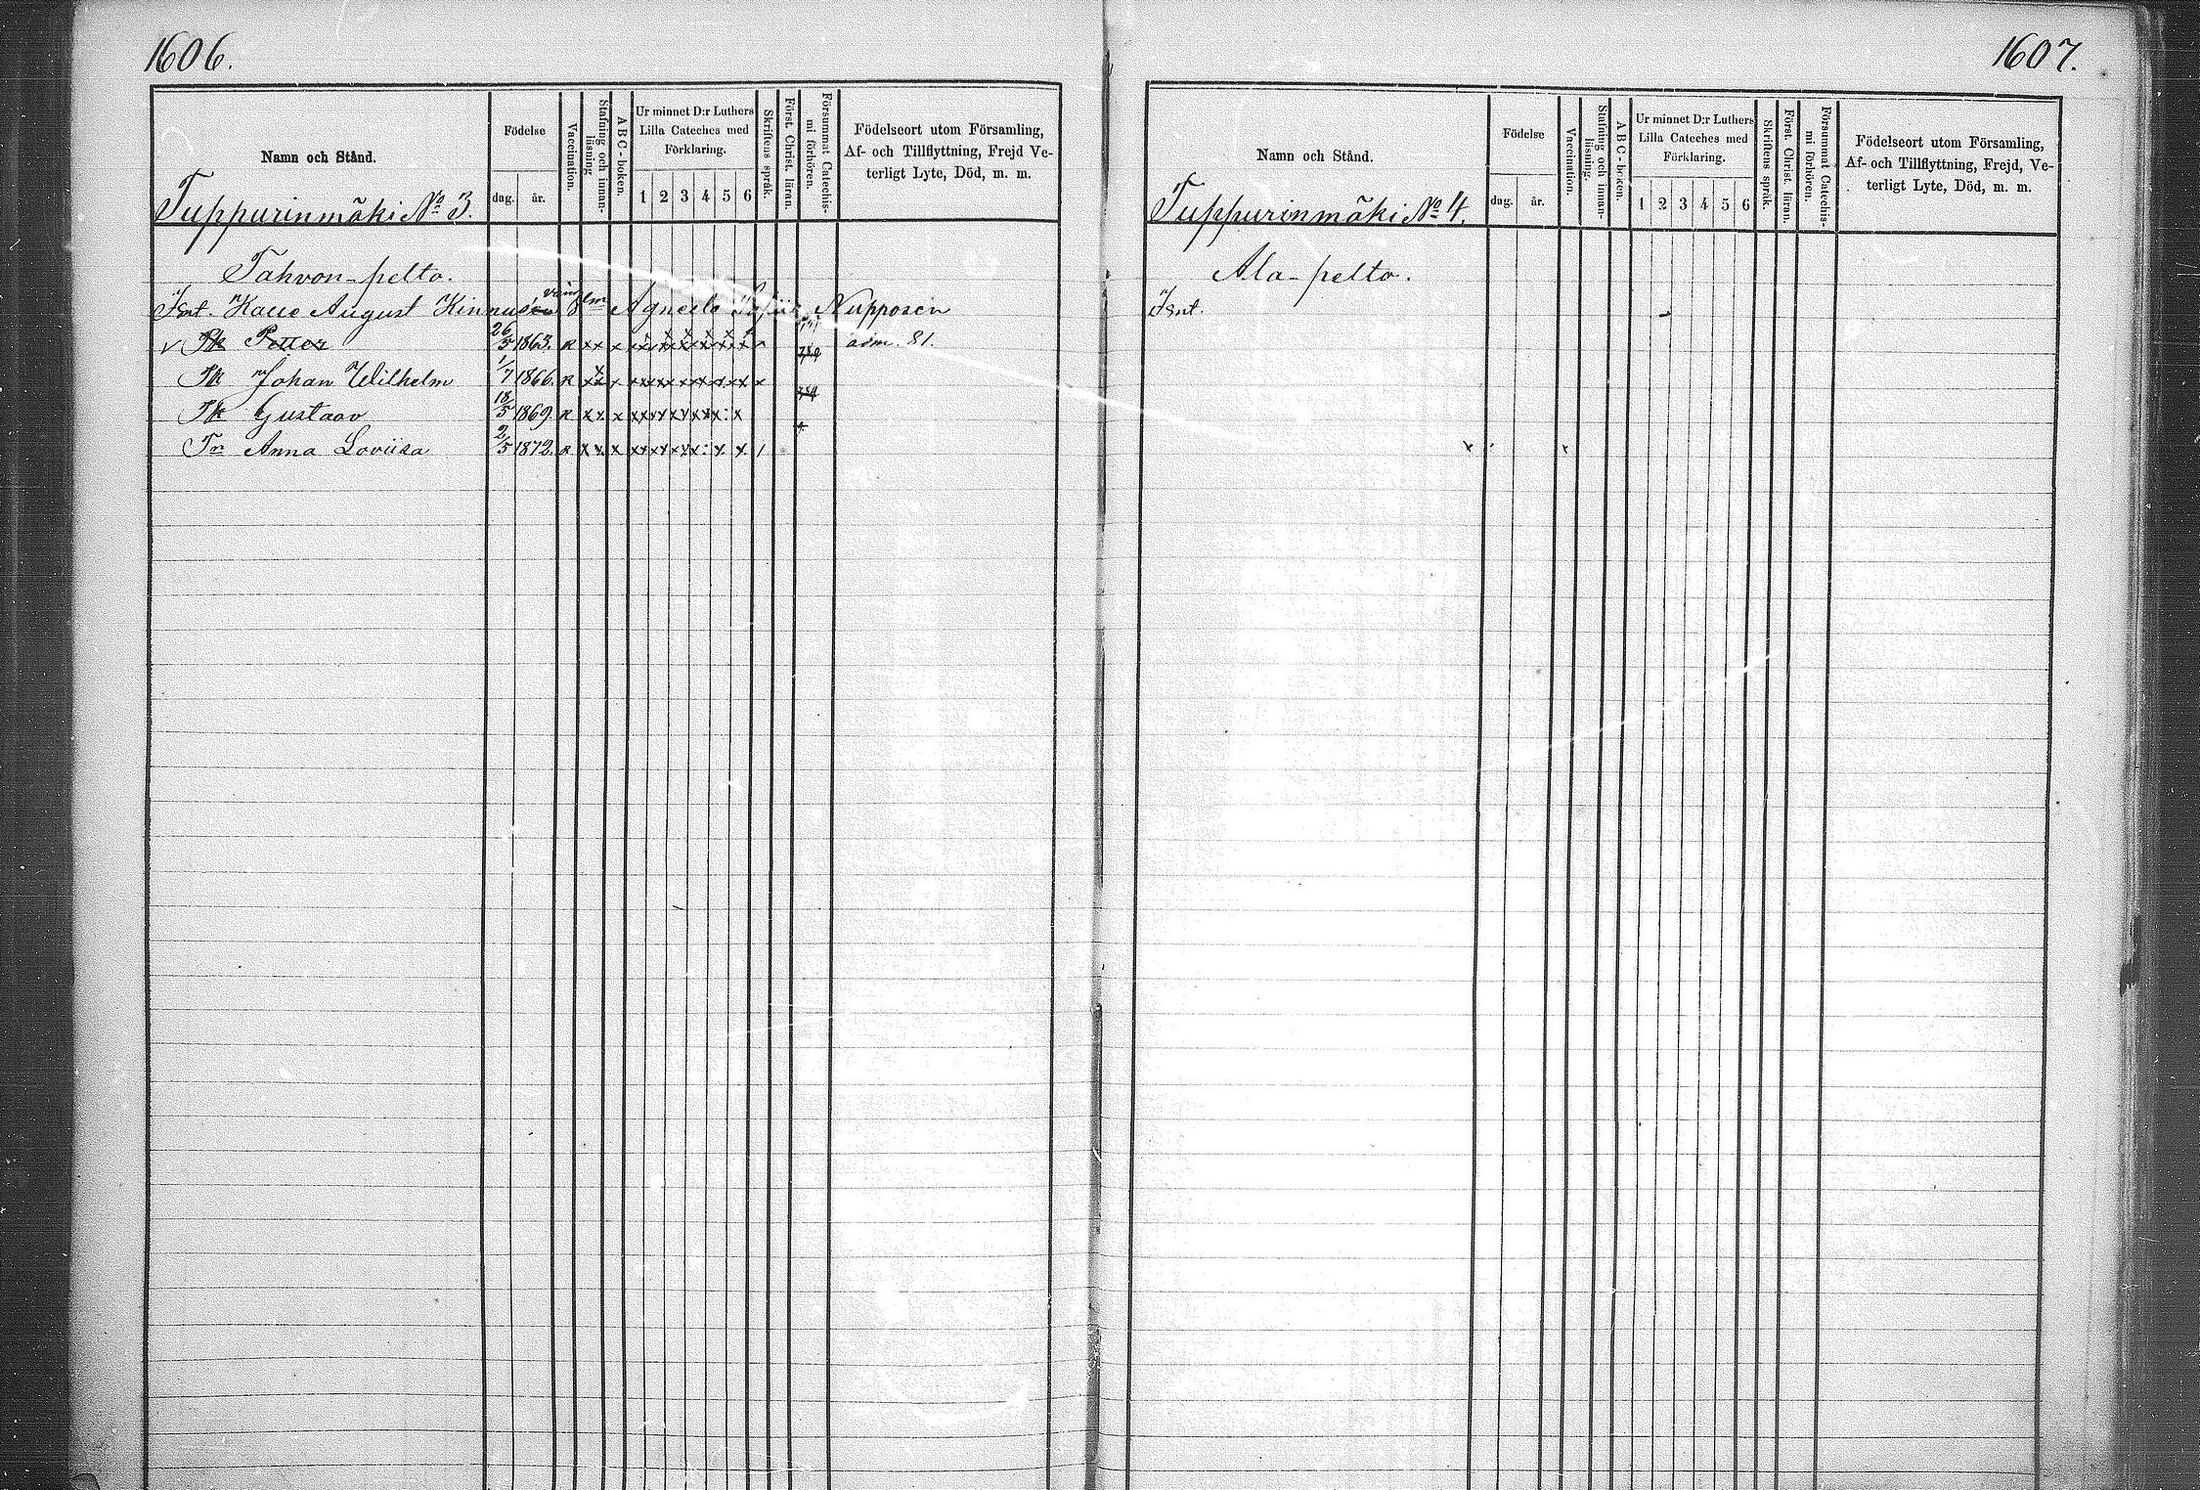 1606.
Namn och Stånd.
Födelse
dag.
år.
Vaccination.
Stafning och innan-
läsning
ABC-boken.
Ur minnet D:r Luthers
Lilla Cateches med
Förklaring.
1 2 3 4 5 6
Skriftens språk.
Först. Christ. läran.
Försummat Catechis-
mi förhören.
Födelseort utom Församling,
Af- och Tillflyttning, Frejd Ve-
terligt Lyte, Död, m. m.
Tuppurinmäki No 3.
Tahvon-pelto.
August Agneeta Nupponen
v Sk Petter 26/5 1863. R x x x x x x x x x adm. 81.
Sk Johan Wilhelm 1/7 1866. R x x x xx xx xx xx xx x x
Sk Gustaav 18/5 1869. R x x x xx xx xx xx x: x
Tr Anna Loviisa 2/5 1872. R x x x xx xx xx x: x x /
1607.
Namn och Stånd.
Födelse
dag.
år.
Vaccination.
Stafning och innan-
läsning.
ABC-boken.
Ur minnet D:r Luthers
Lilla Cateches med
Förklaring.
1 2 3 4 5 6
Skriftens språk.
Först. Christ. läran.
Försummat Catechis-
mi förhören.
Födelseort utom Församling,
Af- och Tillflyttning, Frejd, Ve-
terligt Lyte, Död, m. m.
Tuppurinmäki No 4.
Ala-pelto.